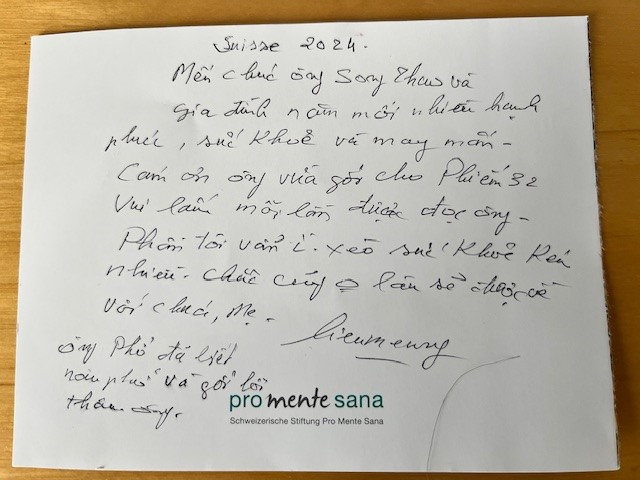 Suisse 2024.
Mến chúc ông Song Thao và
gia đình năm mới nhiều hạnh
phúc, sức khoẻ và may mắn -
Cám ơn ông vừa gởi cho Phiếm 32
Vui lắm mỗi lần được đọc ông -
Phần tôi vẫn ì - xèo sức khoẻ kém
nhiều - chắc cũng o lâu sẽ được về
với chúa, Mẹ -
ông Phổ đã liệt
và gởi lời
thăm ông.
pro mente sana
Schweizerische Stiftung Pro Mente Sana